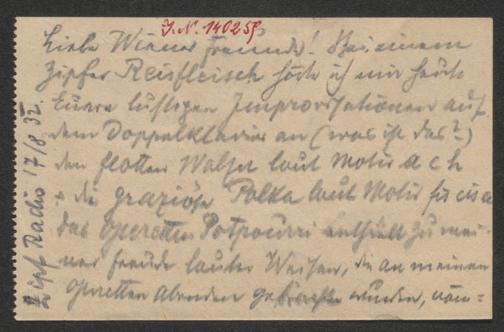 J. N. 140258
Liebe Wiener Freunde! Bei einem
Zipfer Reisfleisch hörte ich mir heute
Eueren lustigen Improvisationen auf
dem Doppelklavier an (was ist das?)
den flotten Walzer laut Motiv d c h
+ die graziöse Polka laut Motiv fis cis a
das Operetten Potpourri enthielt zu mei-
ner Freude lauter Weisen, die an meinen
Operetten Abenden gebracht wurden, näm=
Zipf Radio 17/8 32.